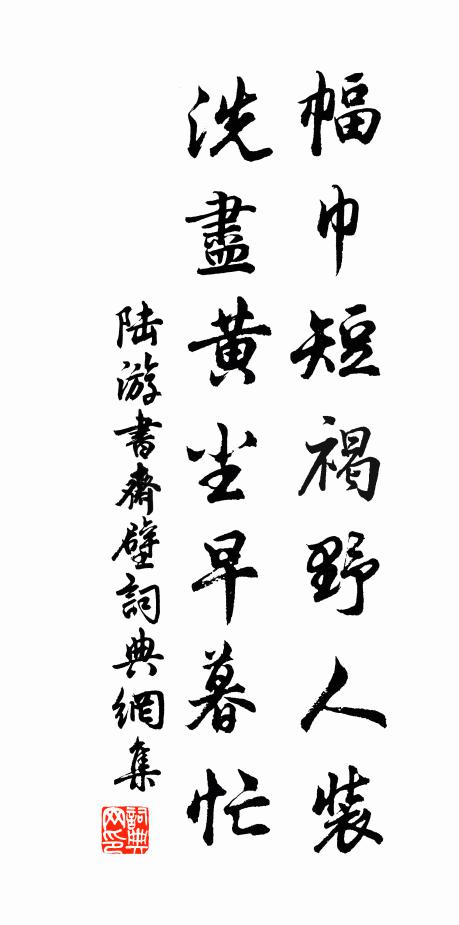 幅巾短褐野人裝
洗盡黃尘早暮忙
陆游書齋壁詞典網集
詞典网印